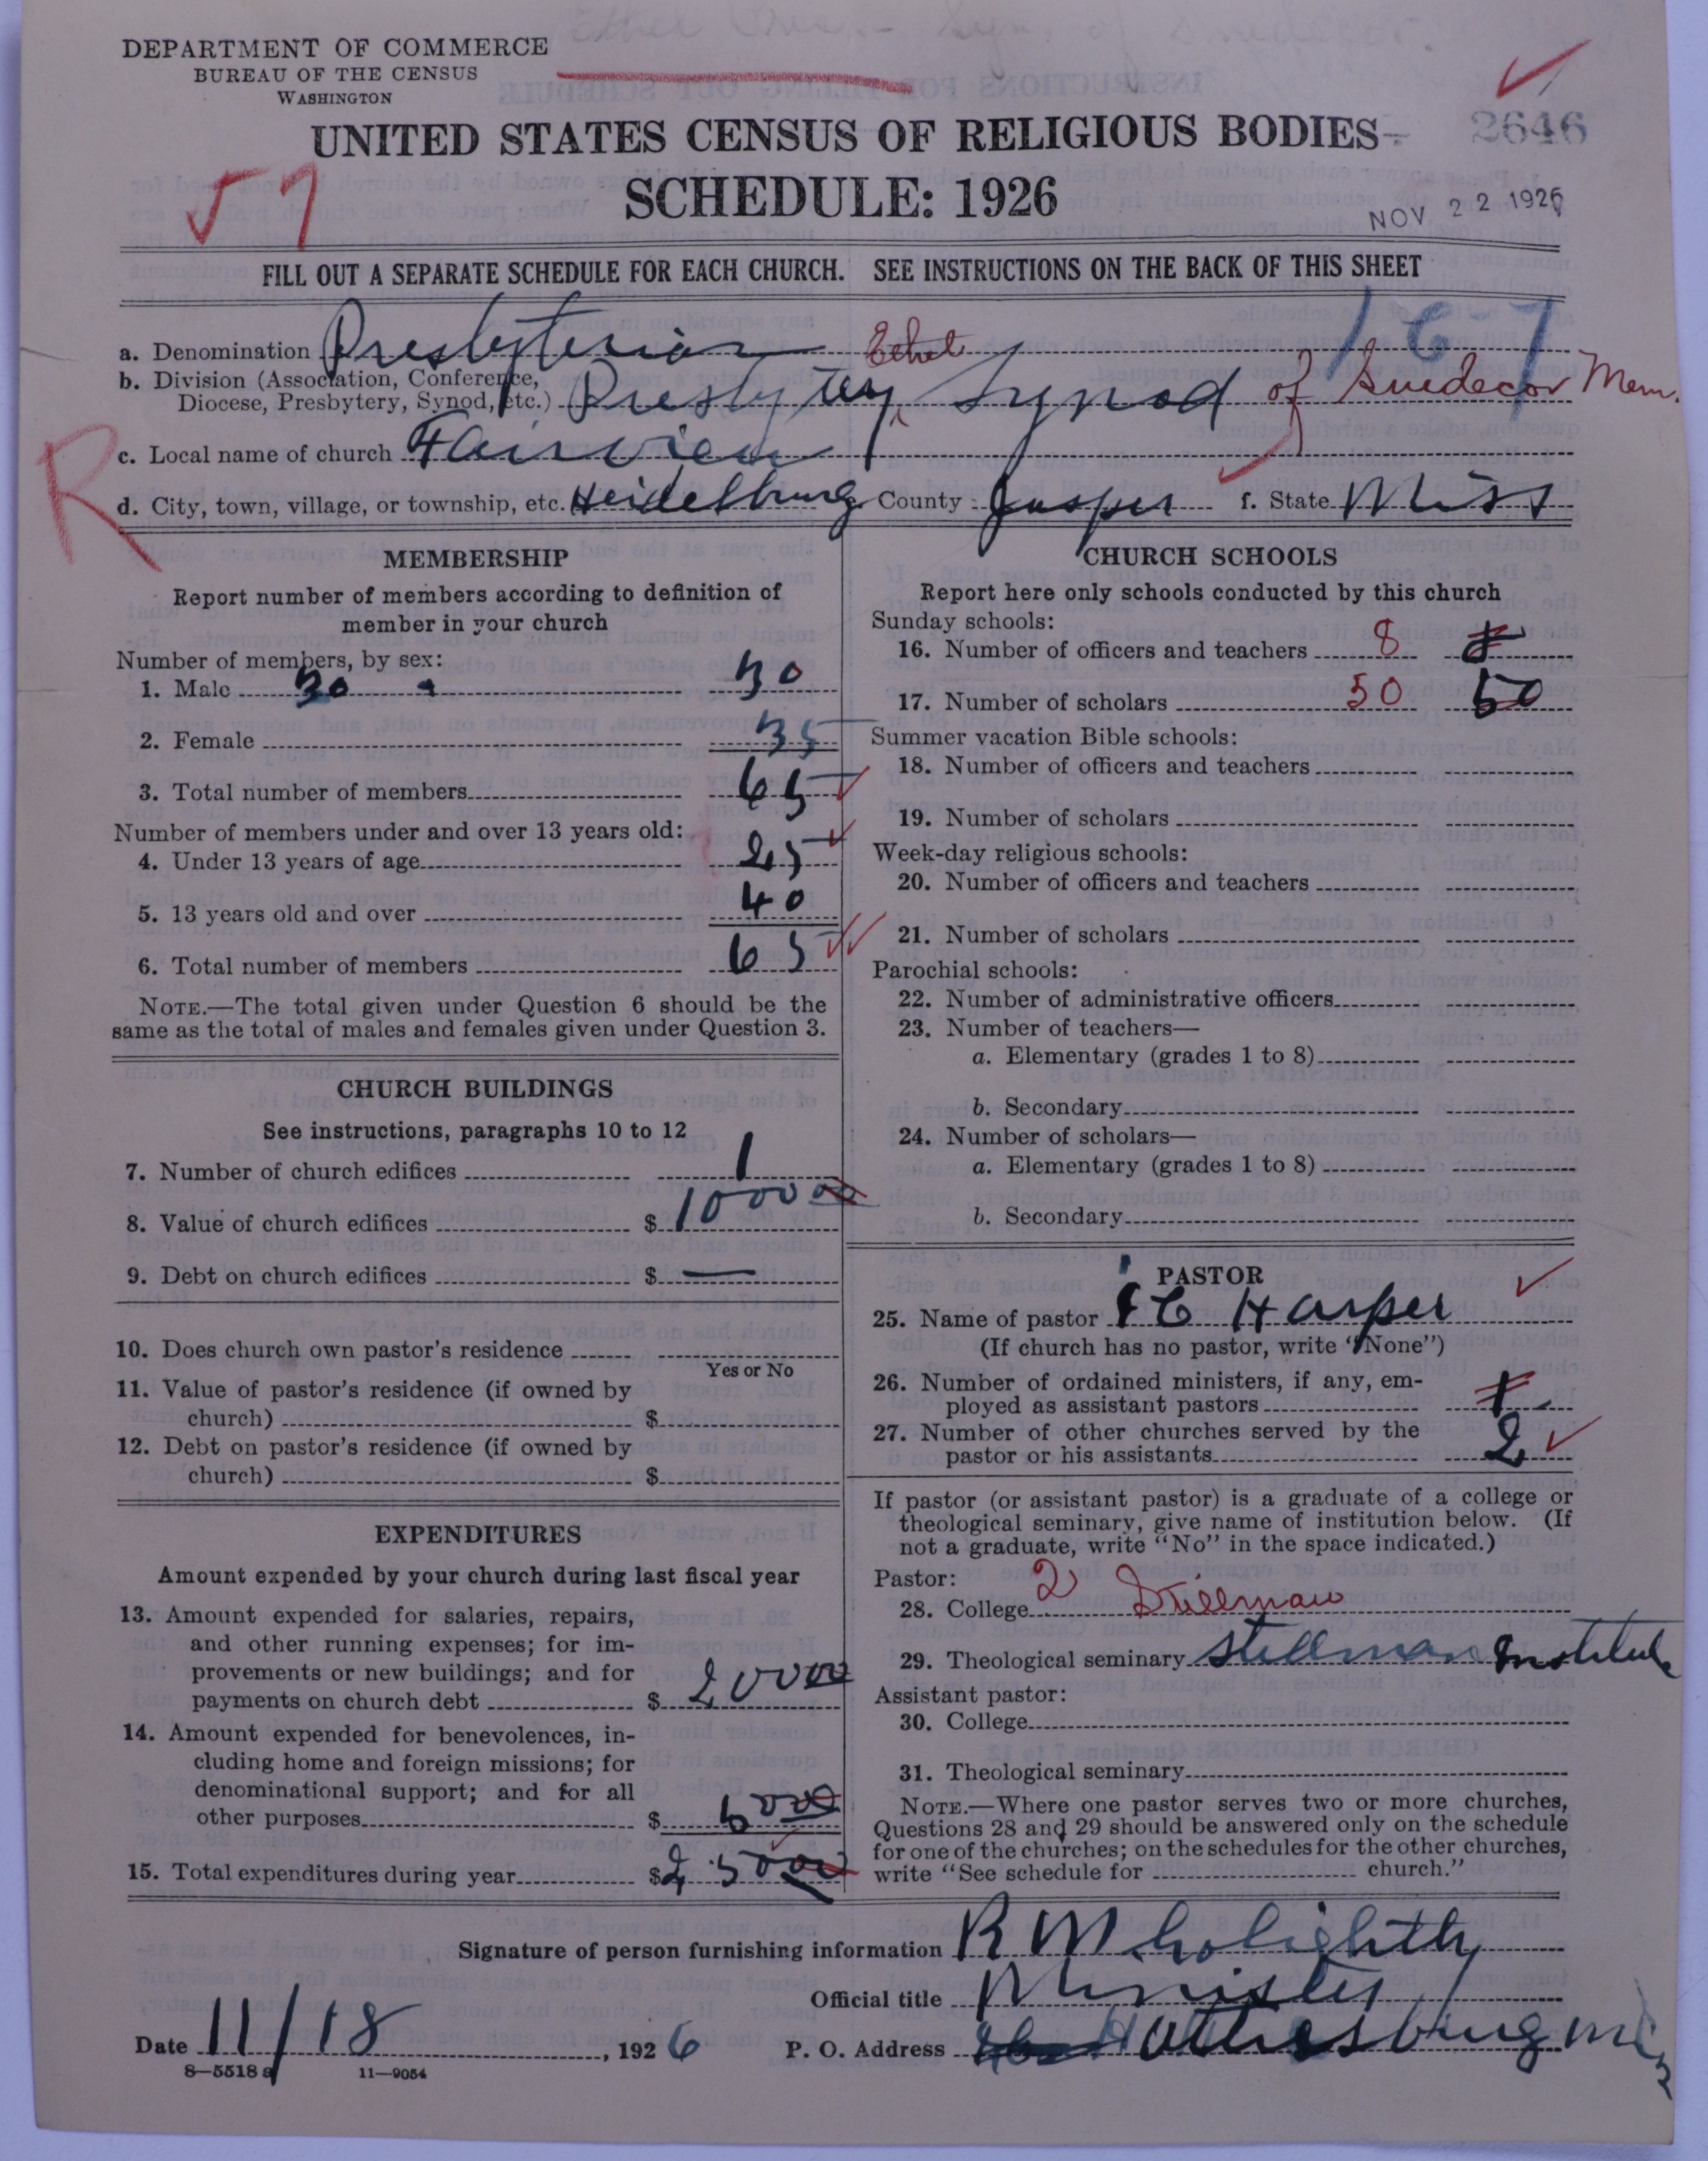 DEPARTMENT OF COMMERCE
BUREAU OF THE CENSUS
WASHINGTON
UNITED STATES CENSUS OF RELIGIOUS BODIES
2646
SCHEDULE: 1926
57
NOV 22 1926
FILL OUT A SEPARATE SCHEDULE FOR EACH CHURCH. SEE INSTRUCTIONS ON THE BACK OF THIS SHEET
167
a. Denomination Presbyterian
b. Division (Association, Conference, Diocese, Presbytery, Synod, etc.) Presbytery, Ethel Synod of Snedecor Mem.
R
c. Local name of church Fairview
d. City, town, village, or township, etc. Heidelburg County Jasper f. State Miss
MEMBERSHIP
Report number of members according to definition of
member in your church
Number of members, by sex:
1. Male 30 30
2. Female 35
3. Total number of members 65
Number of members under and over 13 years old:
4. Under 13 years of age 25
5. 13 years old and over 40
6. Total number of members 65
NOTE.—The total given under Question 6 should be the
same as the total of males and females given under Question 3.
CHURCH BUILDINGS
See instructions, paragraphs 10 to 12
7. Number of church edifices 1
8. Value of church edifices $ 1000 00
9. Debt on church edifices $ —
10. Does church own pastor's residence
Yes or No
11. Value of pastor's residence (if owned by
church) $
12. Debt on pastor's residence (if owned by
church) $
EXPENDITURES
Amount expended by your church during last fiscal year
13. Amount expended for salaries, repairs,
and other running expenses; for im-
provements or new buildings; and for
payments on church debt $ 200 00
14. Amount expended for benevolences, in-
cluding home and foreign missions; for
denominational support; and for all
other purposes $ 50 00
15. Total expenditures during year $ 250 00
CHURCH SCHOOLS
Report here only schools conducted by this church
Sunday schools:
16. Number of officers and teachers 8
17. Number of scholars 50 50
Summer vacation Bible schools:
18. Number of officers and teachers
19. Number of scholars
Week-day religious schools:
20. Number of officers and teachers
21. Number of scholars
Parochial schools:
22. Number of administrative officers
23. Number of teachers—
a. Elementary (grades 1 to 8)
b. Secondary
24. Number of scholars—
a. Elementary (grades 1 to 8)
b. Secondary
PASTOR
25. Name of pastor C Harper
(If church has no pastor, write "None")
26. Number of ordained ministers, if any, em-
ployed as assistant pastors
27. Number of other churches served by the
pastor or his assistants 2
If pastor (or assistant pastor) is a graduate of a college or
theological seminary, give name of institution below. (If
not a graduate, write "No" in the space indicated.)
Pastor:
28. College 2 Stillman
29. Theological seminary Stillman Institute
Assistant pastor:
30. College
31. Theological seminary
NOTE.—Where one pastor serves two or more churches,
Questions 28 and 29 should be answered only on the schedule
for one of the churches; on the schedules for the other churches,
write "See schedule for church."
Signature of person furnishing information R M Golightly
Official title Minister
Date 11/18, 1926 P. O. Address Hattiesburg Miss
8—5518 a 11—9054